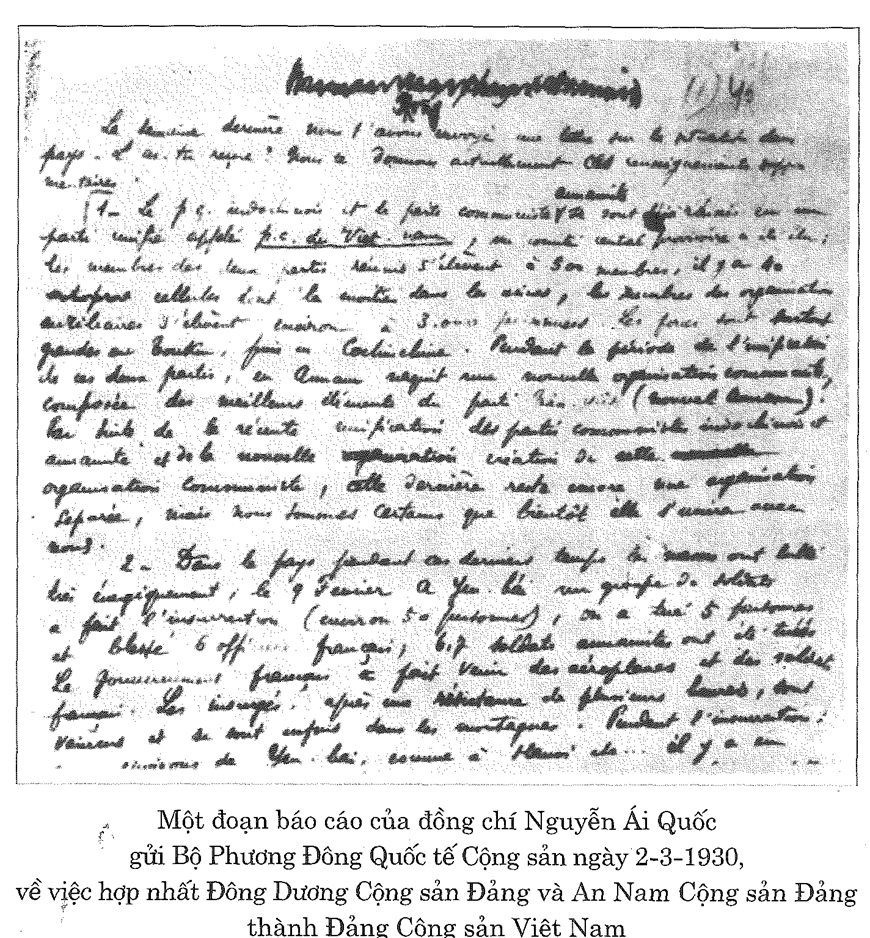 (1) 40
La semaine dernière nous t'avons envoyé une lettre sur la situation du
pays. L'as-tu reçue? Nous te donnons actuellement des renseignements supplé
mentaires.
annamite
1- Le p.c. indochinois et le parti communiste se sont en un
parti unifié appelé p.c. du Viet-nam, un comité central provisoire a été élu;
les membres des deux partis réunis s'élèvent à 500 membres, il y a 40
cellules dont la moitié dans les usines, les membres des organisations
auxiliaires s'élèvent environ à 3.000 Les forces sont surtout
grandes au Tonkin, puis en Cochinchine. Pendant la période de l'unification
de ces deux partis, en Annam naquit une nouvelle organisation communiste,
composée des meilleurs éléments du parti (nouvel Annam).
Par suite de la récente unification des partis communistes indochinois et
annamite et de la nouvelle création de cette
organisation communiste, cette dernière reste encore une organisation
séparée, mais nous sommes certains que bientôt elle s'unira avec
nous.
2- Dans le pays pendant ces derniers temps les ont lutté
très énergiquement, le 9 Février à Yen-bái un groupe de soldats
a fait l'insurrection (environ 50 personnes), on a tué 5 personnes
et blessé 6 officiers français, 6,7 soldats annamites ont été tués
Le Gouvernement français a fait venir des aéroplanes et des soldats
français. Les insurgés, après une résistance de plusieurs heures, sont
vaincus et se sont enfuis dans les montagnes. Pendant l'insurrection:
environs de Yen-bai, comme à Hanoi etc... il y a eu
Một đoạn báo cáo của đồng chí Nguyễn Ái Quốc
gửi Bộ Phương Đông Quốc tế Cộng sản ngày 2-3-1930,
về việc hợp nhất Đông Dương Cộng sản Đảng và An Nam Cộng sản Đảng
thành Đảng Cộng sản Việt Nam